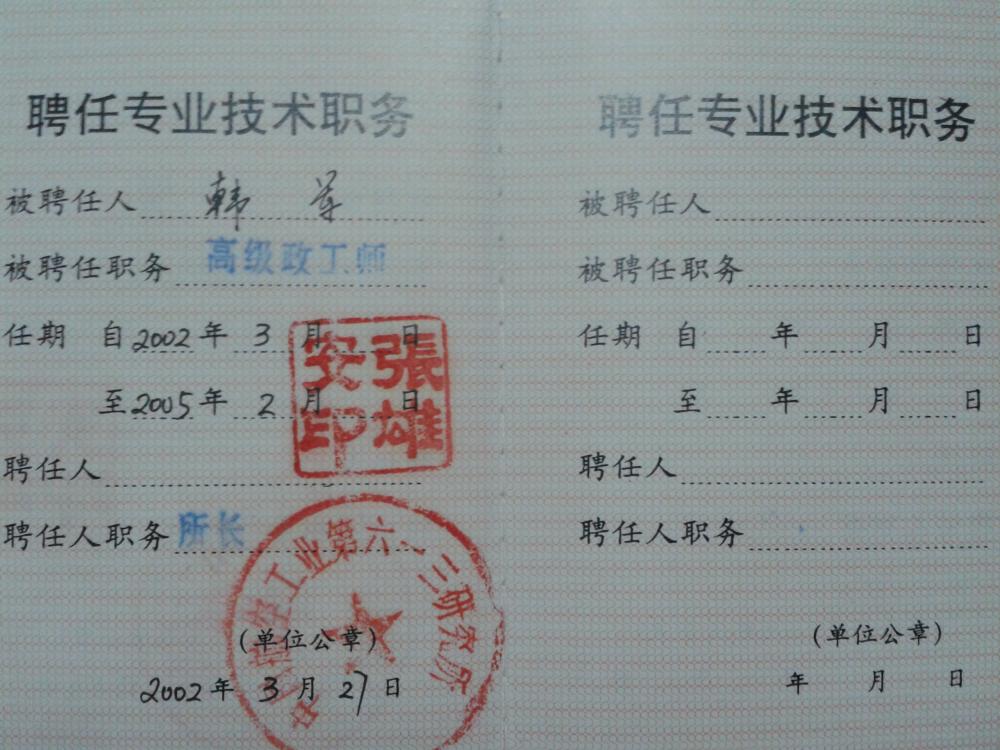 聘任专业技术职务
被聘任人 韩军
被聘任职务 高级政工师
任期 自2002年3月 日
至2005年2月 日
張雄
安印
聘任人
聘任人职务 所长
中国航空工业第六一三研究所
(单位公章)
2002年3月27日
聘任专业技术职务
被聘任人
被聘任职务
任期 自 年 月 日
至 年 月 日
聘任人
聘任人职务
(单位公章)
年 月 日